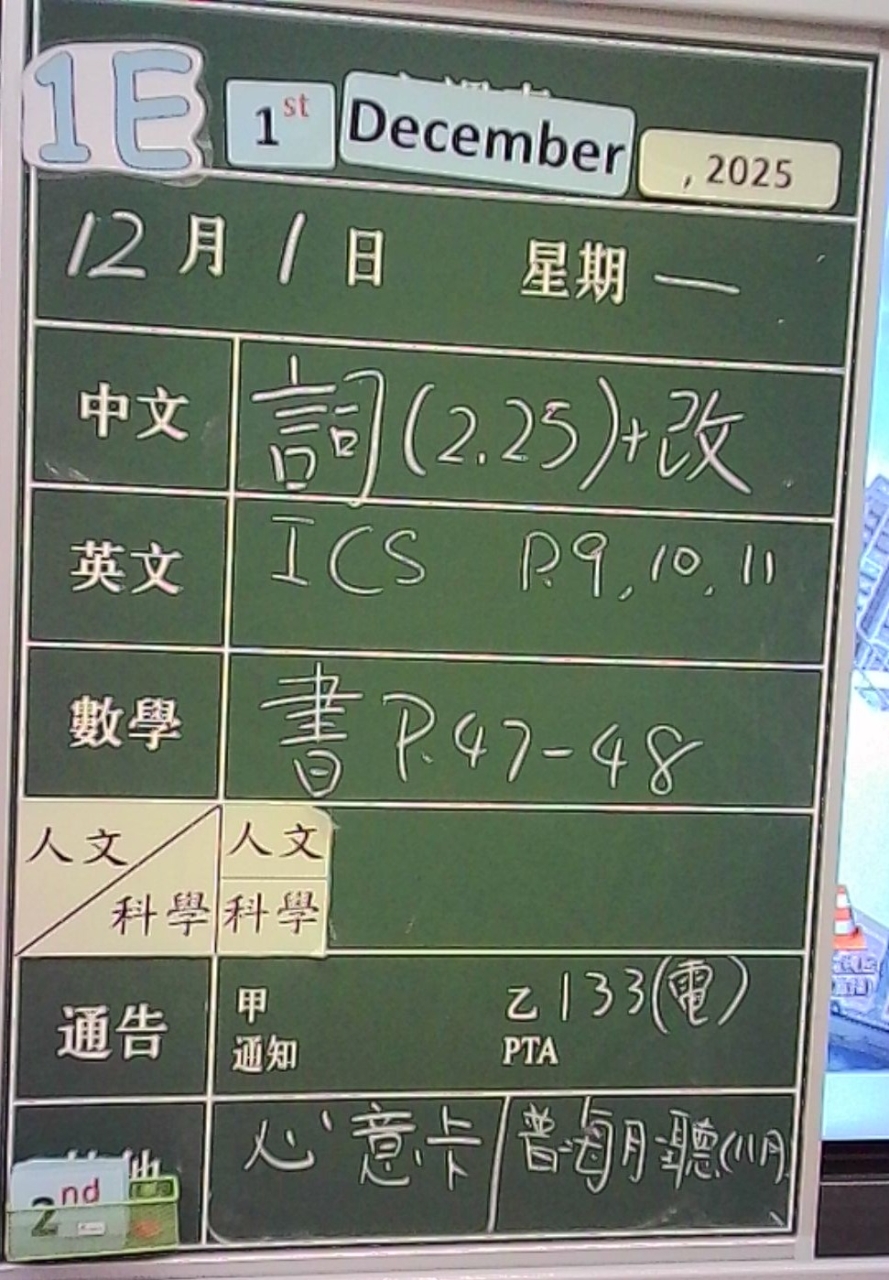 1E 1st December , 2025
12月1日 星期一
中文 詞(2.25)+改
英文 ICS P.9, 10, 11
數學 書 P.47-48
人文 人文
科學 科學
通告 甲 乙 133(電)
通知 PTA
心意卡 普每月一聽(11月)
2nd